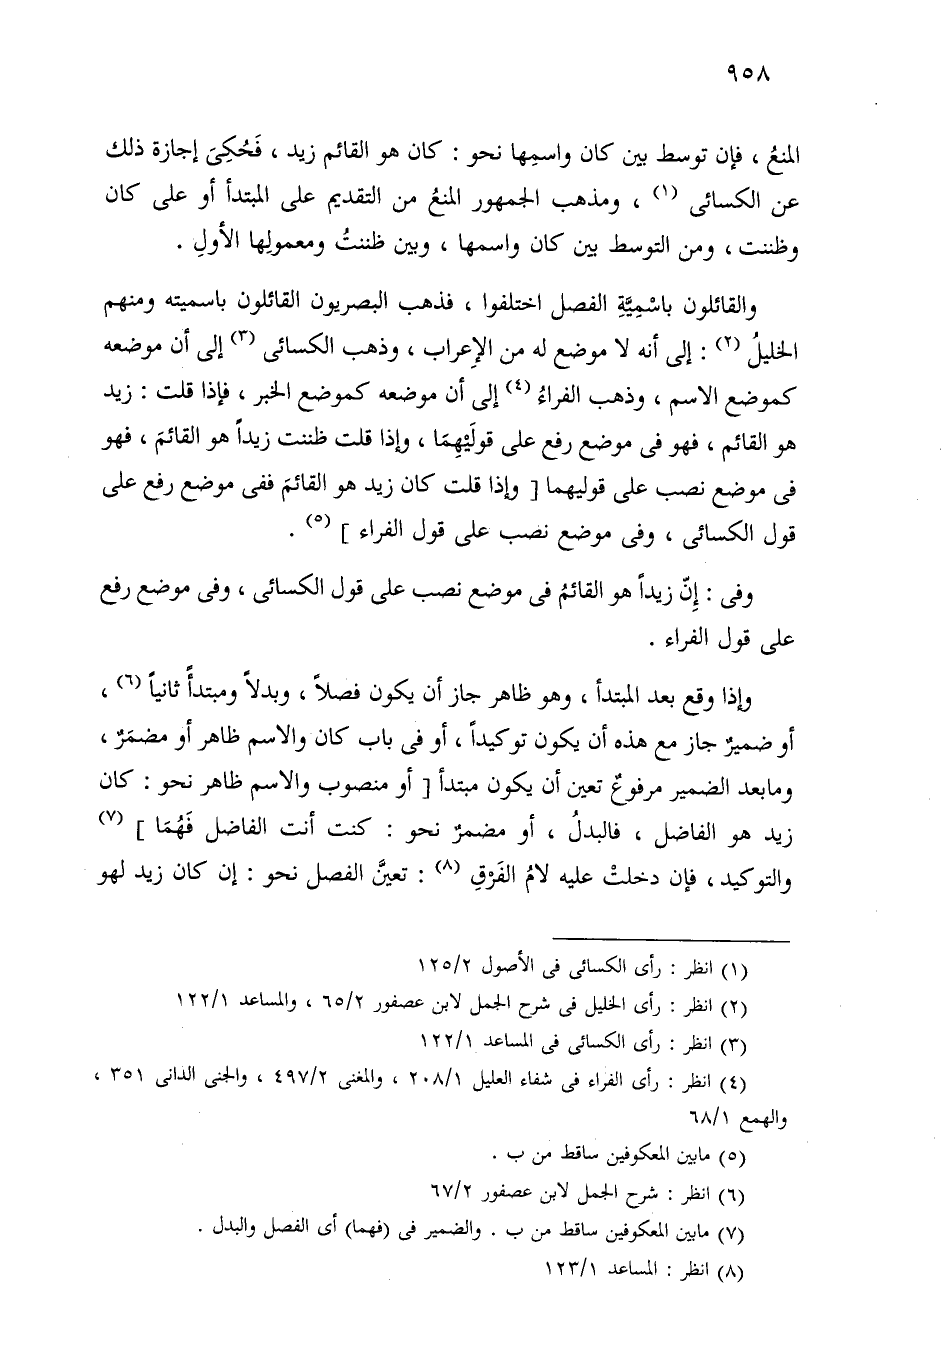 ٩٥٨
المنعُ ، فإن توسط بين كان واسمِها نحو : كان هو القائم زيد ، فَحُكِىَ إجازة ذلك
عن الكسائى (١) ، ومذهب الجمهور المنعُ من التقديم على المبتدأ أو على كان
وظننت ، ومن التوسط بين كان واسمها ، وبين ظننتُ ومعمولِها الأولِ .
والقائلون باسْمِيَّةِ الفصل اختلفوا ، فذهب البصريون القائلون باسميته ومنهم
الخليلُ (٢) : إلى أنه لا موضع له من الإعراب ، وذهب الكسائى (٣) إلى أن موضعه
كموضع الاسم ، وذهب الفراءُ (٤) إلى أن موضعه كموضع الخبر ، فإذا قلت : زيد
هو القائم ، فهو فى موضع رفع على قولَيْهِمَا ، وإذا قلت ظننت زيداً هو القائمَ ، فهو
فى موضع نصب على قوليهما [ وإذا قلت كان زيد هو القائمَ ففى موضع رفع على
قول الكسائى ، وفى موضع نصب على قول الفراء ] (٥) .
وفى : إِنّ زيداً هو القائمُ فى موضع نصب على قول الكسائى ، وفى موضع رفع
على قول الفراء .
وإذا وقع بعد المبتدأ ، وهو ظاهر جاز أن يكون فصلاً ، وبدلاً ومبتدأً ثانياً (٦) ،
أو ضميرٌ جاز مع هذه أن يكون توكيداً ، أو فى باب كان والاسم ظاهر أو مضمَرٌ ،
ومابعد الضمير مرفوعٌ تعين أن يكون مبتدأ [ أو منصوب والاسم ظاهر نحو : كان
زيد هو الفاضل ، فالبدلُ ، أو مضمرٌ نحو : كنت أنت الفاضل فَهُمَا ] (٧)
والتوكيد ، فإن دخلتْ عليه لامُ الفَرْقِ (٨) : تعينَّ الفصل نحو : إن كان زيد لهو
(١) انظر : رأى الكسائى فى الأصول ١٢٥/٢
(٢) انظر : رأى الخليل فى شرح الجمل لابن عصفور ٦٥/٢ ، والمساعد ١٢٢/١
(٣) انظر : رأى الكسائى فى المساعد ١٢٢/١
(٤) انظر : رأى الفراء فى شفاء العليل ٢٠٨/١ ، والمغنى ٤٩٧/٢ ، والجنى الدانى ٣٥١ ،
والهمع ٦٨/١
(٥) مابين المعكوفين ساقط من ب .
(٦) انظر : شرح الجمل لابن عصفور ٦٧/٢
(٧) مابين المعكوفين ساقط من ب . والضمير فى (فهما) أى الفصل والبدل .
(٨) انظر : المساعد ١٢٣/١